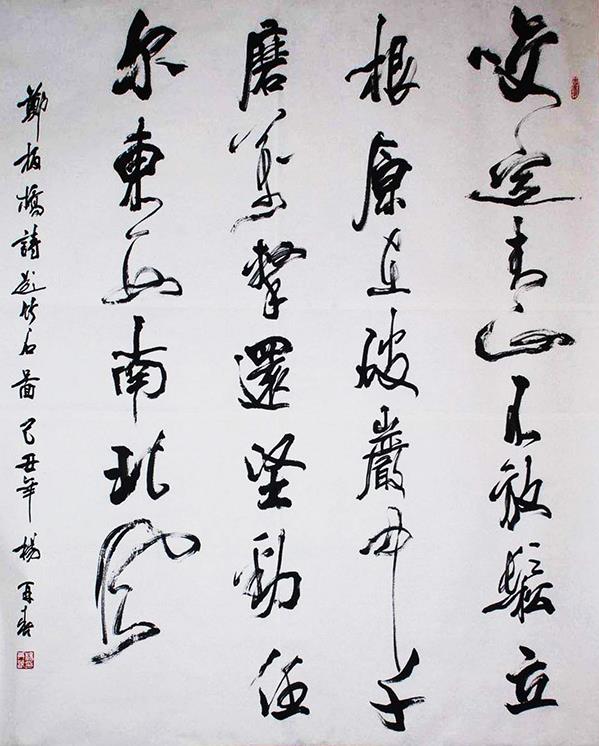 咬定青山不放鬆立
根原在破巖中千
磨萬擊還坚勁任
尔東西南北風
鄭板橋詩題竹石圖 己丑年 楊再春